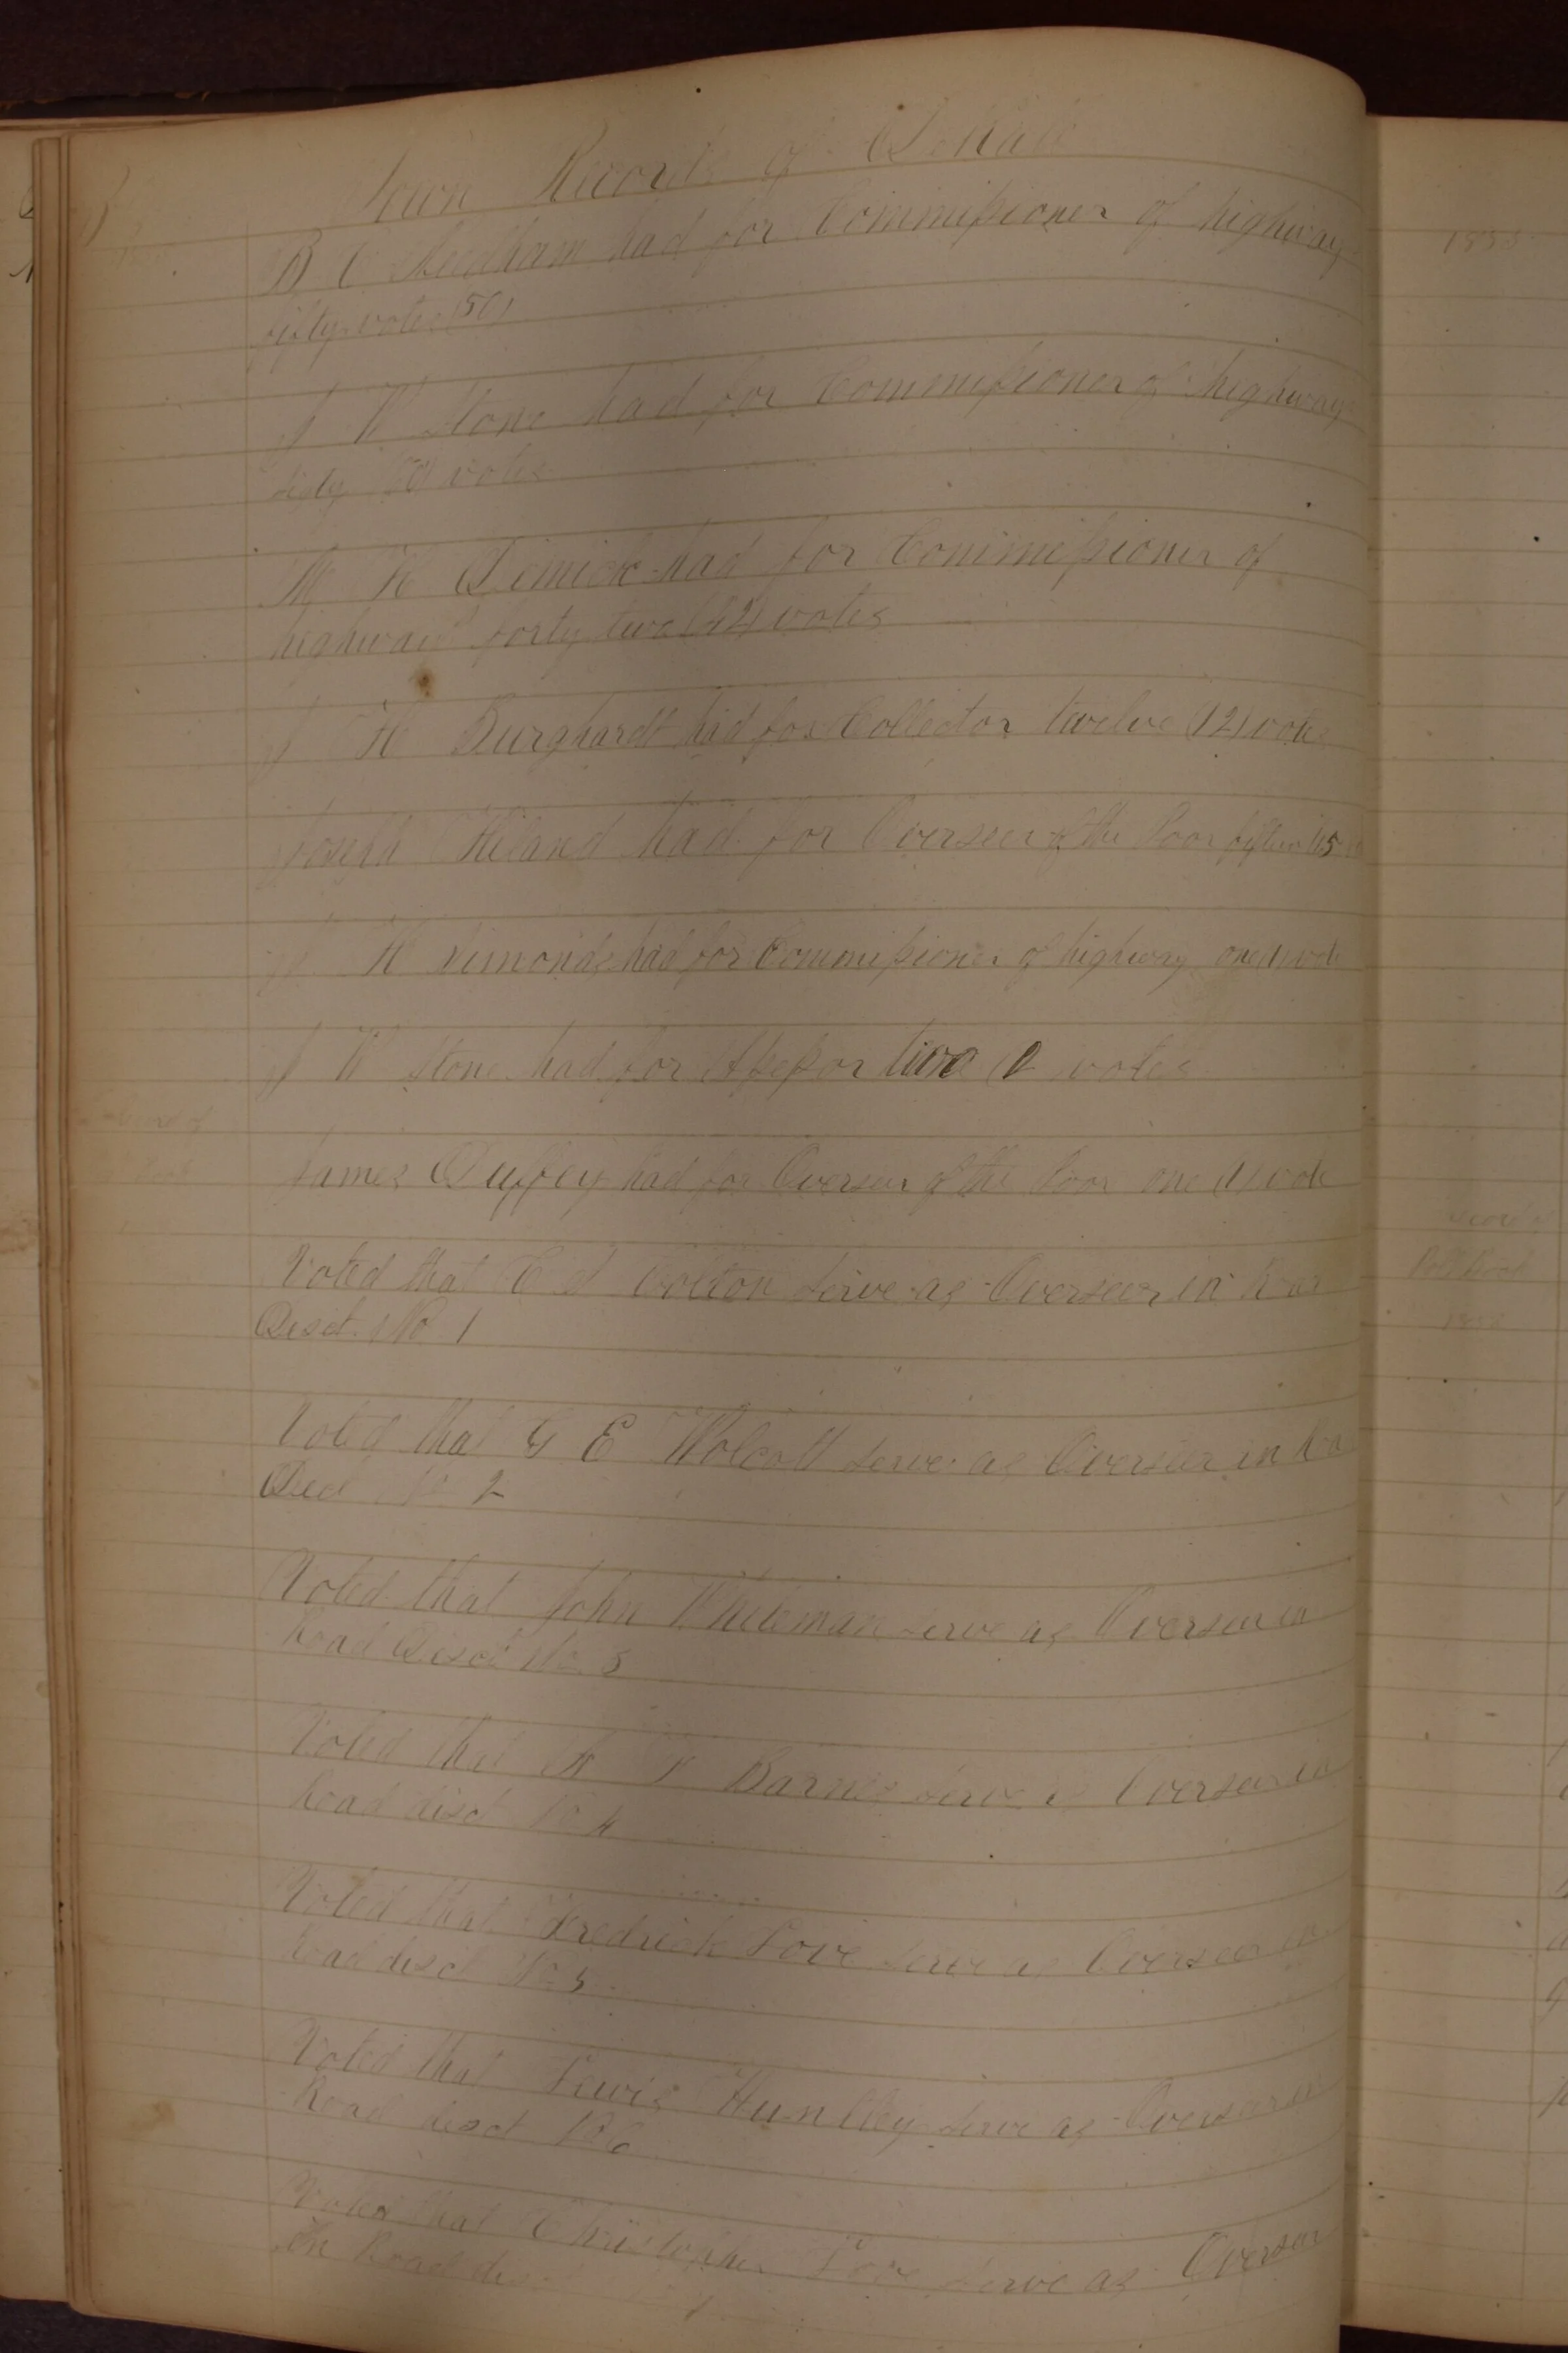 Town Records of DeKalb
B C Needham had for Commissioner of highway
fifty votes (50)
J W Stone had for Commissioner of highway
votes
M K Dimick had for Commissioner of
highway forty two (42) votes
J H Burghardt had for Collector twelve (12) votes
Joseph Hiland had for Overseer of the Poor fifteen (15
H Simonds had for Commissioner of highway one (1) vote
J W Stone had for Assessor two (2 votes
James Duffey had for Overseer of the Poor one (1) vote
Voted that C S Colton serve as Overseer in Road
Disct. No 1
Voted that G E Wolcott serve as Overseer in Road
Disct No 2
Voted that John Whiteman serve as Overseer in
Road Disct No. 3
Voted that Barnes serve as Overseer in
Road disct No 4
Voted that Fredrick Love serve as Overseer in
Road disct No 5
Voted that Lewis Huntley serve as Overseer in
Road disct No 6
Voted that Christopher Love serve as Overseer
in Road
1858
Record of
Poll Book
1858